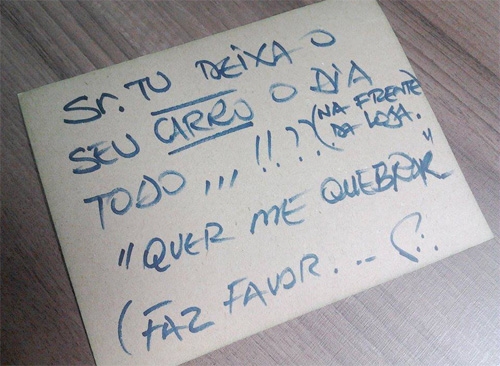 Sr. TU DEIXA O
SEU CARRO O DIA
TODO ,,, !!??
(NA FRENTE
DA LOJA.
"QUER ME QUEBRAR"
(FAZ FAVOR... (:.